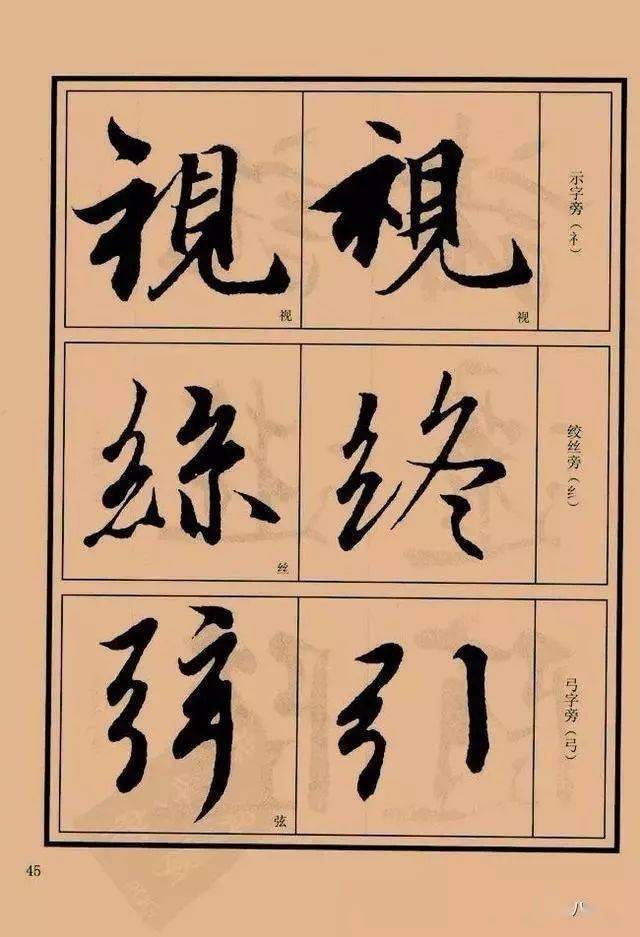 示字旁（礻）
視
视
視
视
绞丝旁（纟）
终
絲
丝
弓字旁（弓）
引
弦
弦
45
八